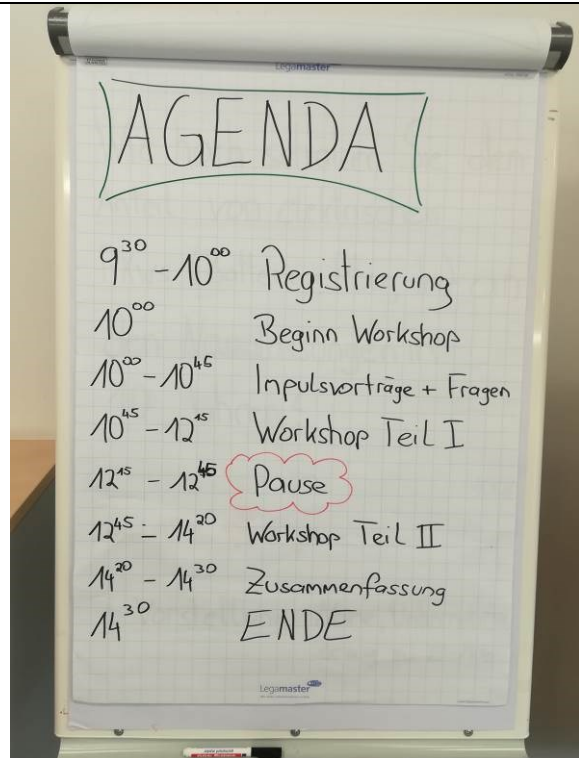 Legamaster
AGENDA
9³⁰ - 10⁰⁰ Registrierung
10⁰⁰ Beginn Workshop
10⁰⁰ - 10⁴⁵ Impulsvorträge + Fragen
10⁴⁵ - 12¹⁵ Workshop Teil I
12¹⁵ - 12⁴⁵ Pause
12⁴⁵ - 14²⁰ Workshop Teil II
14²⁰ - 14³⁰ Zusammenfassung
14³⁰ ENDE
Legamaster